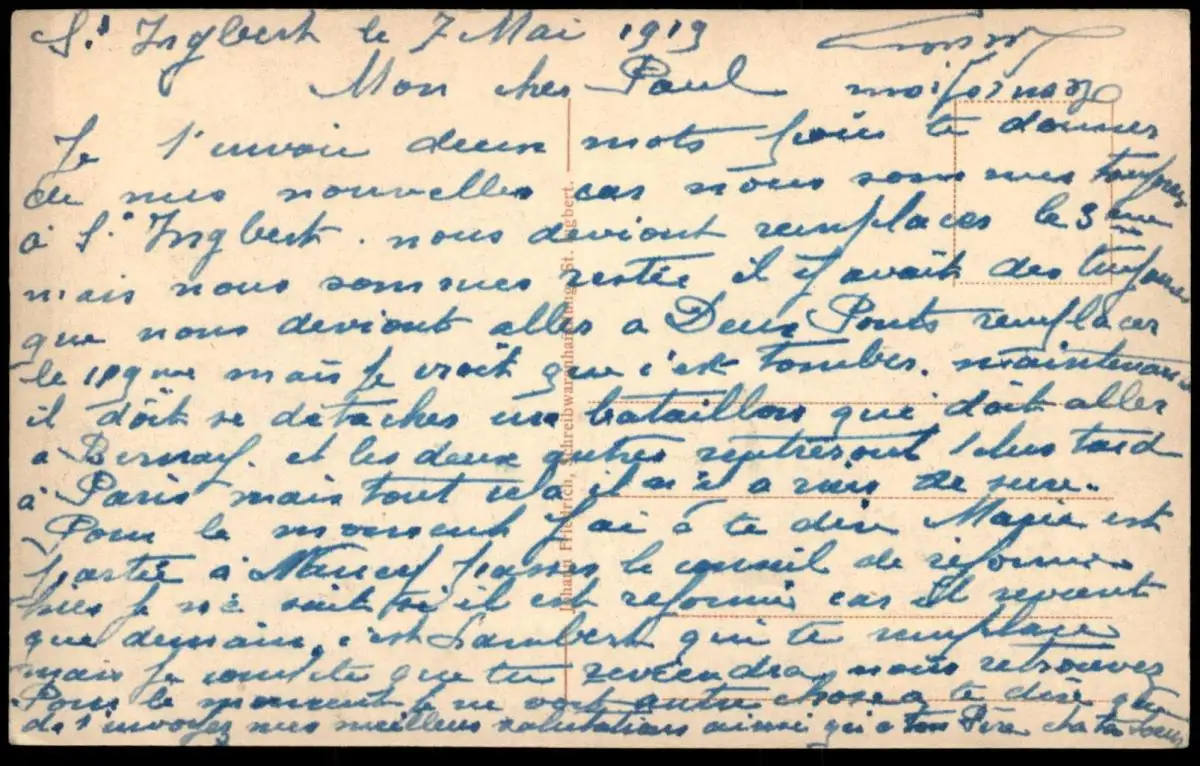 St Ingbert le 7 Mai 1919
Mon cher Paul
Je t'envoie deux mots pour te donner
de mes nouvelles car nous sommes toujours
à St Ingbert. nous deviont remplacer le 3 eme
mais nous sommes restée il y avait des
que nous deviont aller a Deux Ponts remplacer
le mais je croit que c'est tomber. maintenant
il doit se détacher un bataillon qui doit aller
a Bernay. et les deux autres rentreront plus tard
à Paris mais tout cela il n'y a rien de sure.
Pour le moment j'ai à te dire est
partie à Nancy passer le conseil de réforme
hier je ne sait si il est reformé car il revient
que demain, c'est Lambert qui te remplace
mais je compte que tu reviendra nous retrouver
Pour le moment je ne voit autre chose a te dire que
de t'envoyez mes meilleurs salutations ainsi qu'a ton Père et ta Soeur
Johann Friedrich, Schreibwarenhandlung, St. Ingbert.